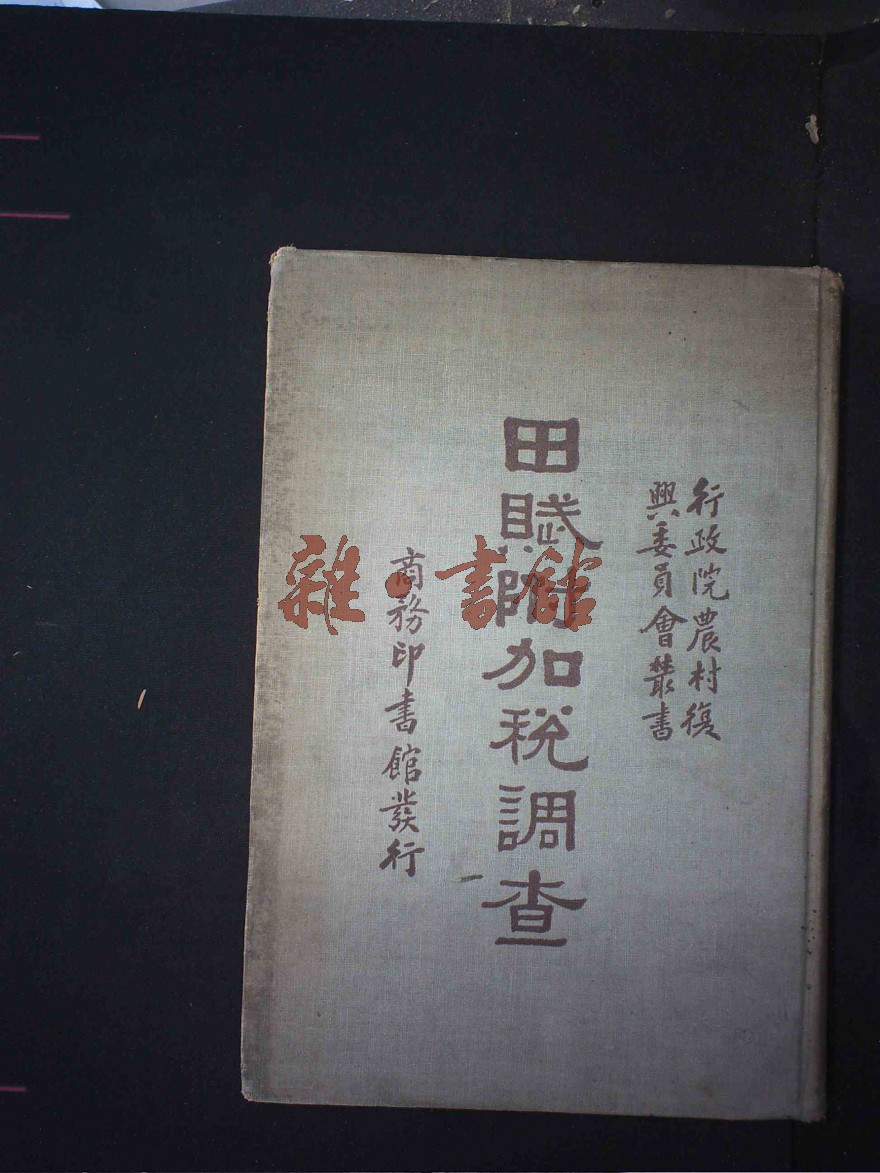 行政院農村復
興委員會叢書
田賦附加税調查
商務印書館發行
雜·書館